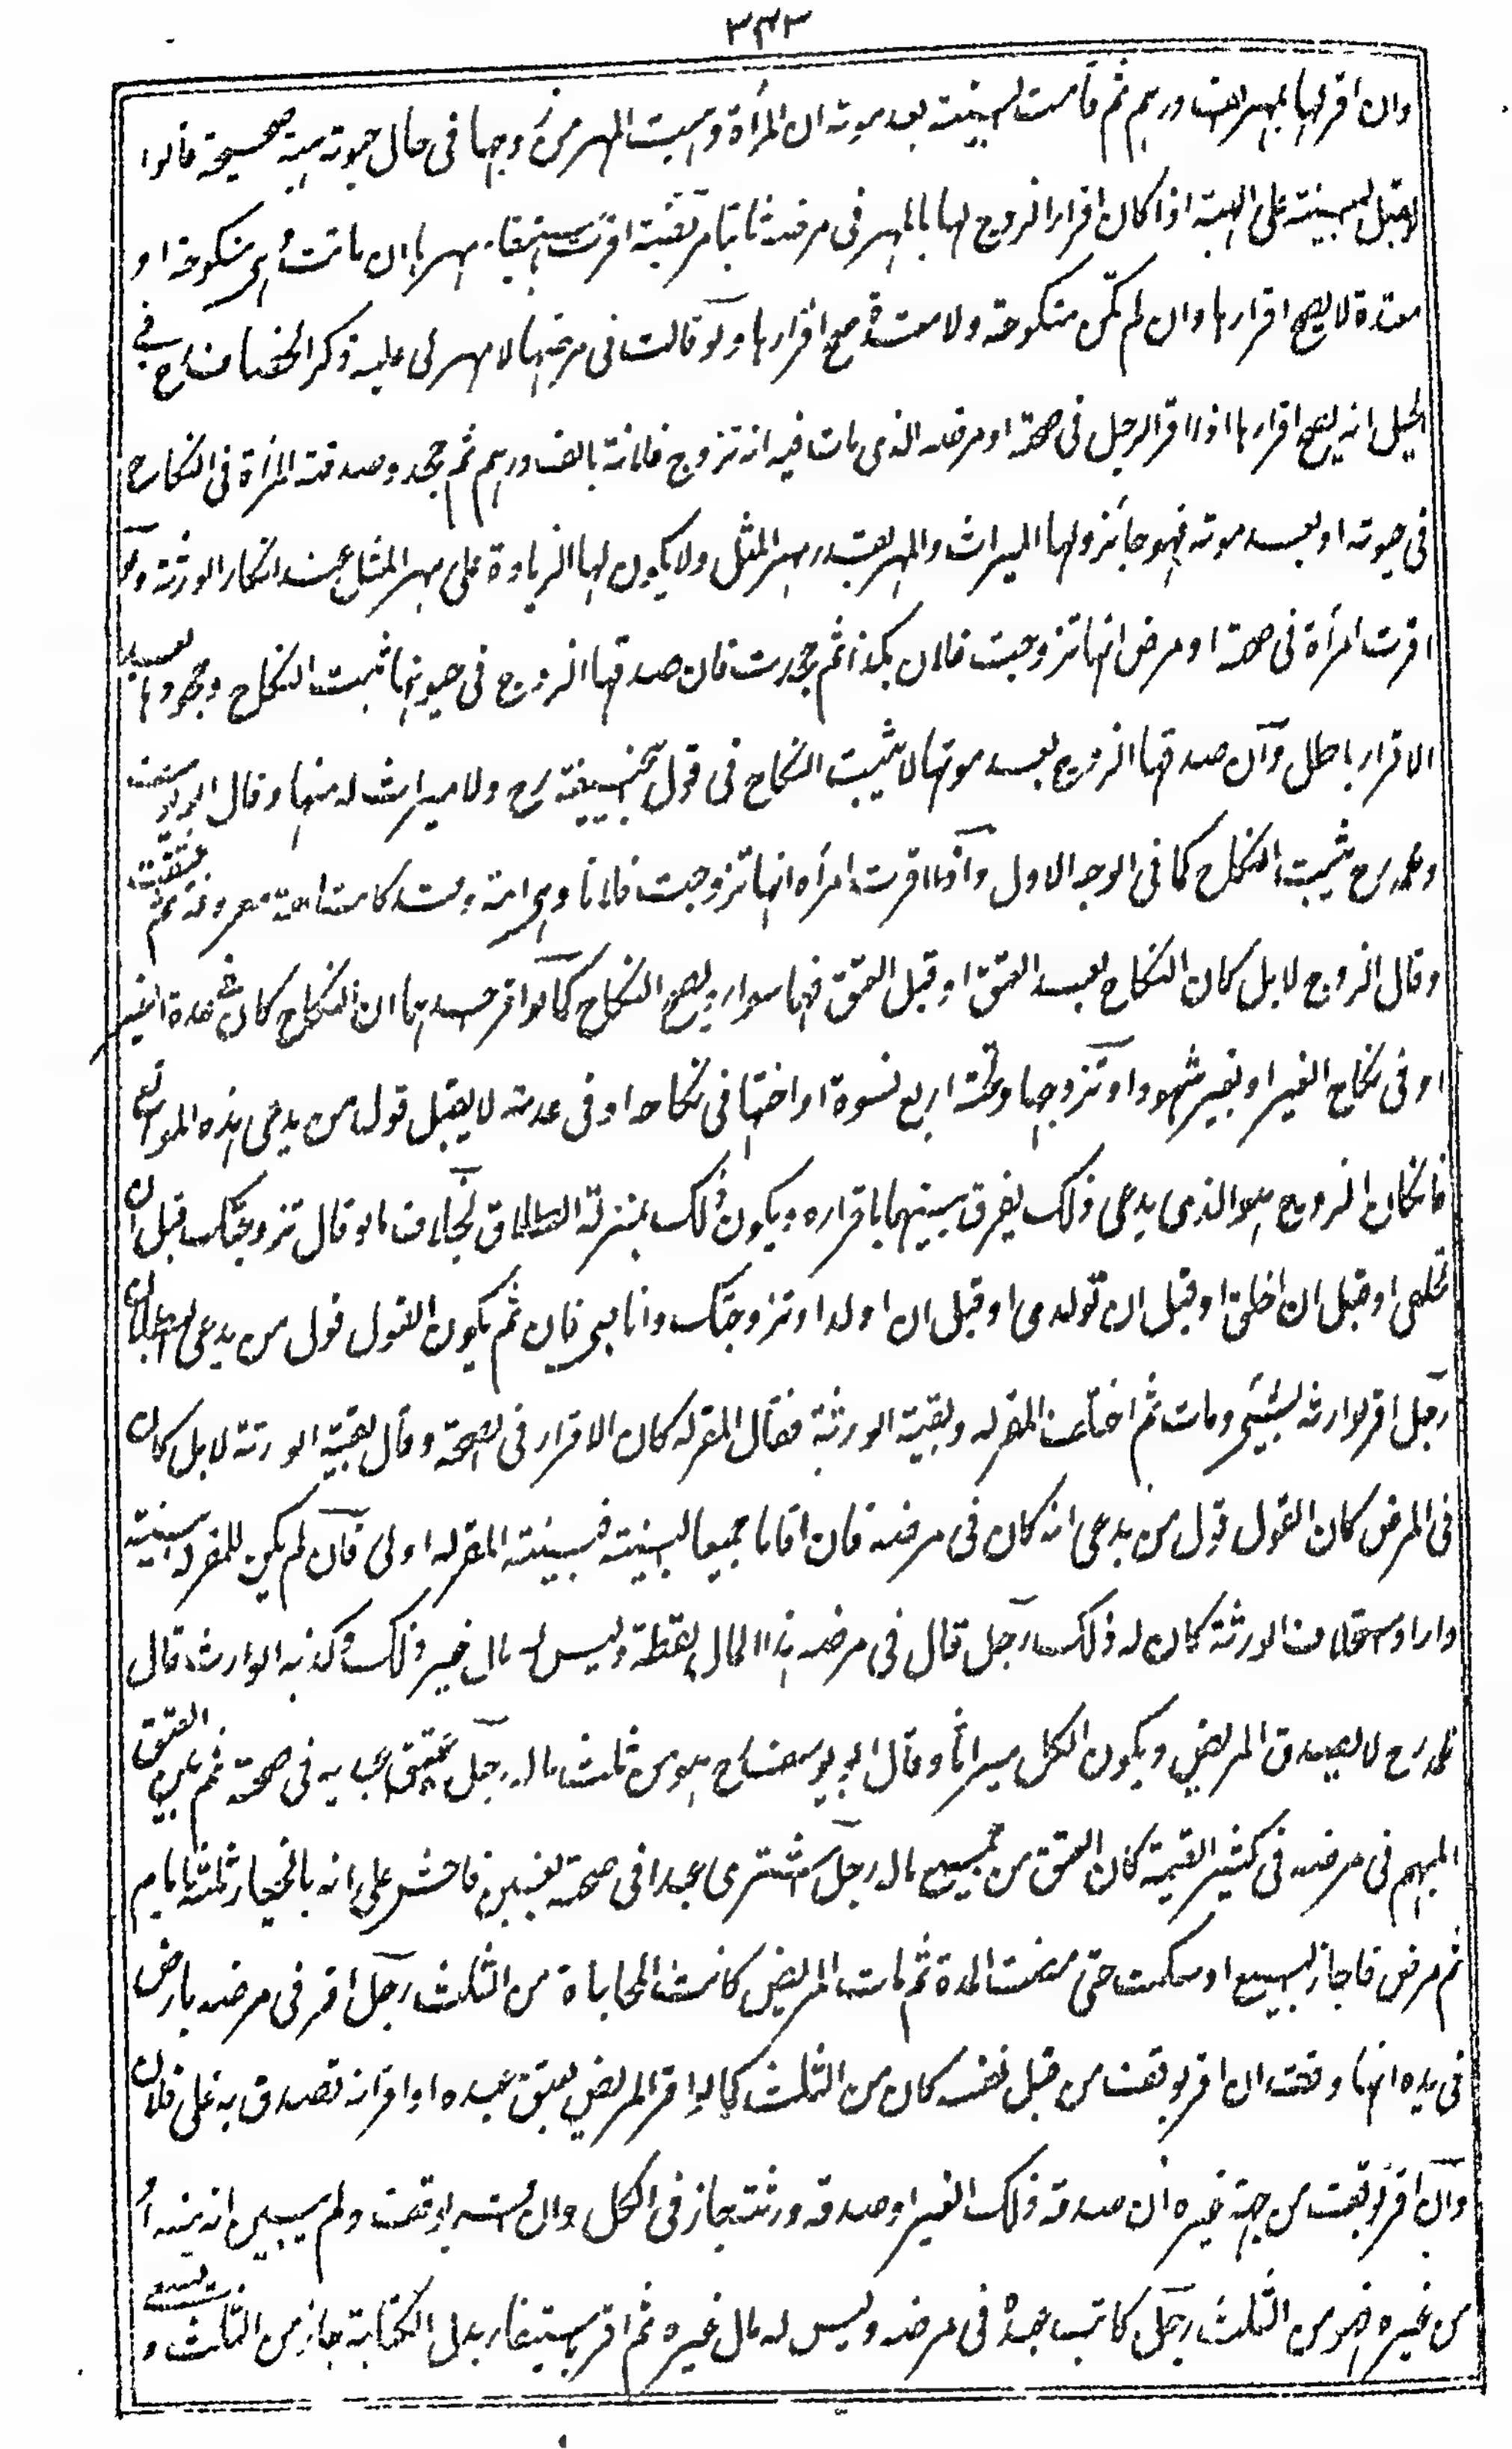 ٣٤٣
وان اقر لها بمهر الف درهم ثم قامت البينة بعد موته ان المرأة وهبت المهر من زوجها فى حال حيوته هبة صحيحة قالوا
لا تقبل البينة على الهبة اذا كان اقرار الزوج لها بالمهر فى مرضه ثابتا مريضة اقرت باستيفاء مهرها ان ماتت وهى منكوحة او
معتدة لا يصح اقرارها وان لم تكن منكوحة ولا معتدة صح اقرارها ولو قالت فى مرضها لا مهر لى عليه ذكر الخصاف رح فى
الحيل انه يصح اقرارها اذا اقر الرجل فى صحته او مرضه الذى مات فيه انه تزوج فلانة بالف درهم ثم جحد وصدقته المرأة فى النكاح
فى حيوته او بعد موته فهو جائز ولها الميراث والمهر بقدر مهر المثل ولا يكون لها الزيادة على مهر المثل عند انكار الورثة ولو
اقرت امرأة فى صحة او مرض انها تزوجت فلان بكذا ثم جحدت فان صدقها الزوج فى حيوتها ثبت النكاح وجحودها بعد
الاقرار باطل وان صدقها الزوج بعد موتها لا يثبت النكاح فى قول ابيحنيفة رح ولا ميراث له منها وقال ابو يوسف
ومحمد رح يثبت النكاح كما فى الوجه الاول واذا اقرت امرأة انها تزوجت فلانا وهى امة وقد كانت امة معروفة ثم عتقت
وقال الزوج لا بل كان النكاح بعد العتق او قبل العتق فهما سواء ويصح النكاح كما لو اقر احدهما ان النكاح كان فى عدة الغير
او فى نكاح الغير او بغير شهود او تزوجها وتحته اربع نسوة او اختها فى نكاحه او فى عدته لا يقبل قول من يدعى هذه الموانع
فانكان الزوج هو الذى يدعى ذلك يفرق بينهما باقراره ويكون ذلك بمنزلة الطلاق بخلاف ما لو قال تزوجتك قبل ان
تخلقى او قبل ان اخلق او قبل ان تولدى او قبل ان اولد او تزوجتك وانا صبى فان ثم يكون القول قول من يدعى البطلان
رجل اقر لوارثه بشيئ ومات ثم اختلف المقر له وبقية الورثة فقال المقر له كان الاقرار فى الصحة وقال بقية الورثة لا بل كان
فى المرض كان القول قول من يدعى انه كان فى مرضه فان اقاما جميعا البينة فبينة المقر له اولى فان لم يكن للمقر له بينة
واراد استحلاف الورثة كان له ذلك رجل قال فى مرضه هذا المال لقطة وليس له مال غير ذلك وكذبه الوارث قال
محمد رح لا يصدق المريض ويكون الكل ميراثا وقال ابو يوسف رح هو من ثلث ماله رجل عتق احد عبديه فى صحته ثم بين العتق
المبهم فى مرضه فى كثير القيمة كان العتق من جميع ماله رجل اشترى عبدا فى صحته بغبن فاحش على انه بالخيار ثلثة ايام
ثم مرض فاجاز البيع او سكت حتى مضت المدة ثم مات المريض كانت المحاباة من الثلث رجل اقر فى مرضه بارض
فى يده انها وقف ان اقر بوقف من قبل نفسه كان من الثلث كما لو اقر المريض بعتق عبده او اقر انه تصدق به على فلان
وان اقر بوقف من جهة غيره ان صدقه ذلك الغير او صدقه ورثته جاز فى الكل وان اقر بوقف ولم يبين انه منه او
من غيره فهو من الثلث رجل كاتب عبده فى مرضه وليس له مال غيره ثم اقر باستيفاء بدل الكتابة جاز من الثلث و يسعى